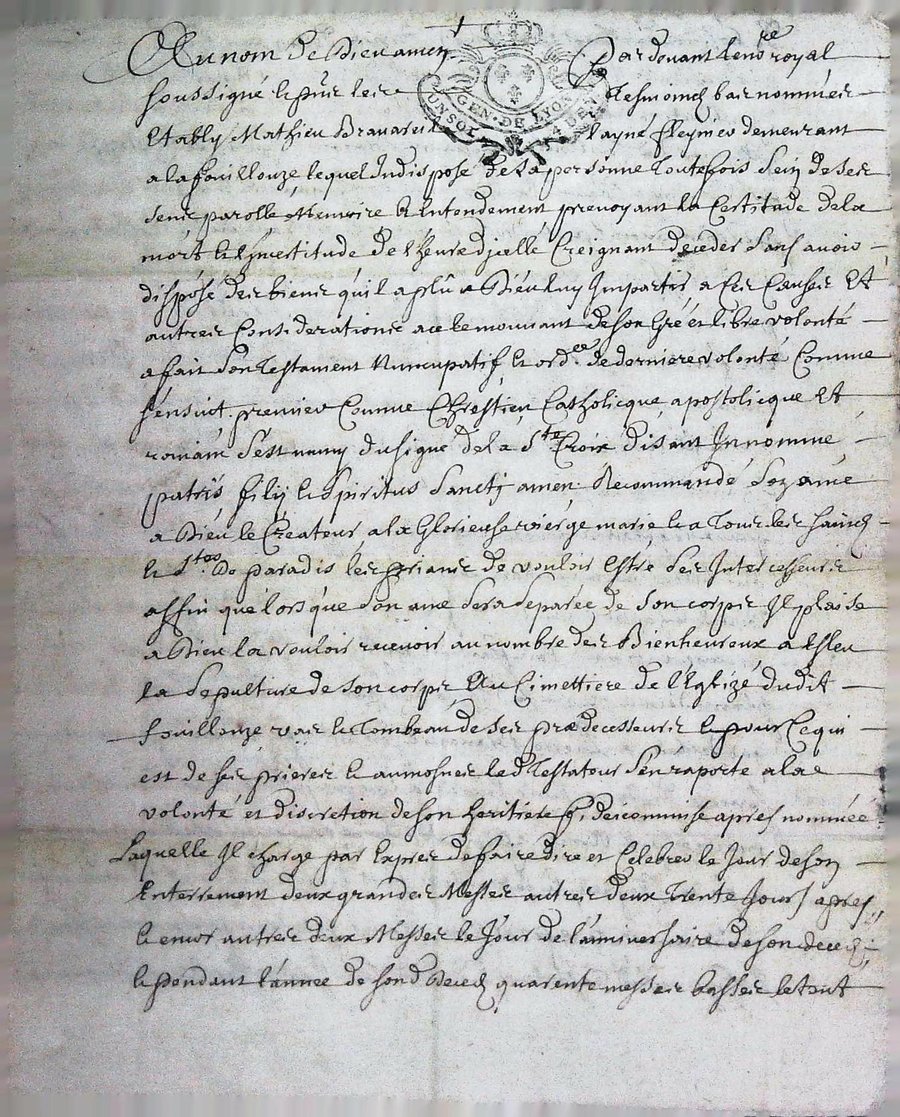 Au nom de Dieu amen Par devant le no.re royal
soussigné et pnt les tesmoincz bas nommés
Estably Mathieu Bravaret layné ffeynier demeurant
a la fouillouze lequel Indisposé de sa personne Toutefois sein de ses
sens parolle Memoire et Entendement prevoyant la Certitude dela
mort et Lyncertitude de l'heure dycelle Creignant deceder sans avoir
disposé des biens quil a plû a Dieu luy Impartir a Ces Causes Et
autres Considerations ace le mouvant de son Gré et libre volonté
a fait son Testament Nuncupatif et ord.ce de derniere volonté Comme
sensuit. premier Comme Chrestien Catholicque apostolicque Et
romain sest muny du signe de la S.te Croix disant In nomine
patris filij et spiritus sanctj amen. Recommandé son ame
a Dieu le Createur, a la Glorieuse vierge marie et a Tous les saincts
et S.tes de paradis les priant de vouloir Estre ses Intercesseurs
affin que lors que son ame sera separée de son corps Il plaise
a Dieu la vouloir recevoir au nombre des Bienheureux a Esleu
la sepulture de son corps Au Cimettiere de l'Eglize dudit
fouillouze vers le Tombeau de ses prædecesseurs et pour Ce qui
est de ses prieres et aumosnes led Testateur s'en raporte a la
volonté et discretion de son heritiere fideicommise apres nommée
Laquelle Il charge par Expres de faire dire et Celebrer le Jour de son
Enterrement deux grandes Messes autres deux Trente Jours apres,
et encor autres deux Messes le Jour de l'anniversaire de son deced
et pendant l'année de sond Deced quarente messes basses le tout
GEN. DE LYON
UN SOL 4 DEN